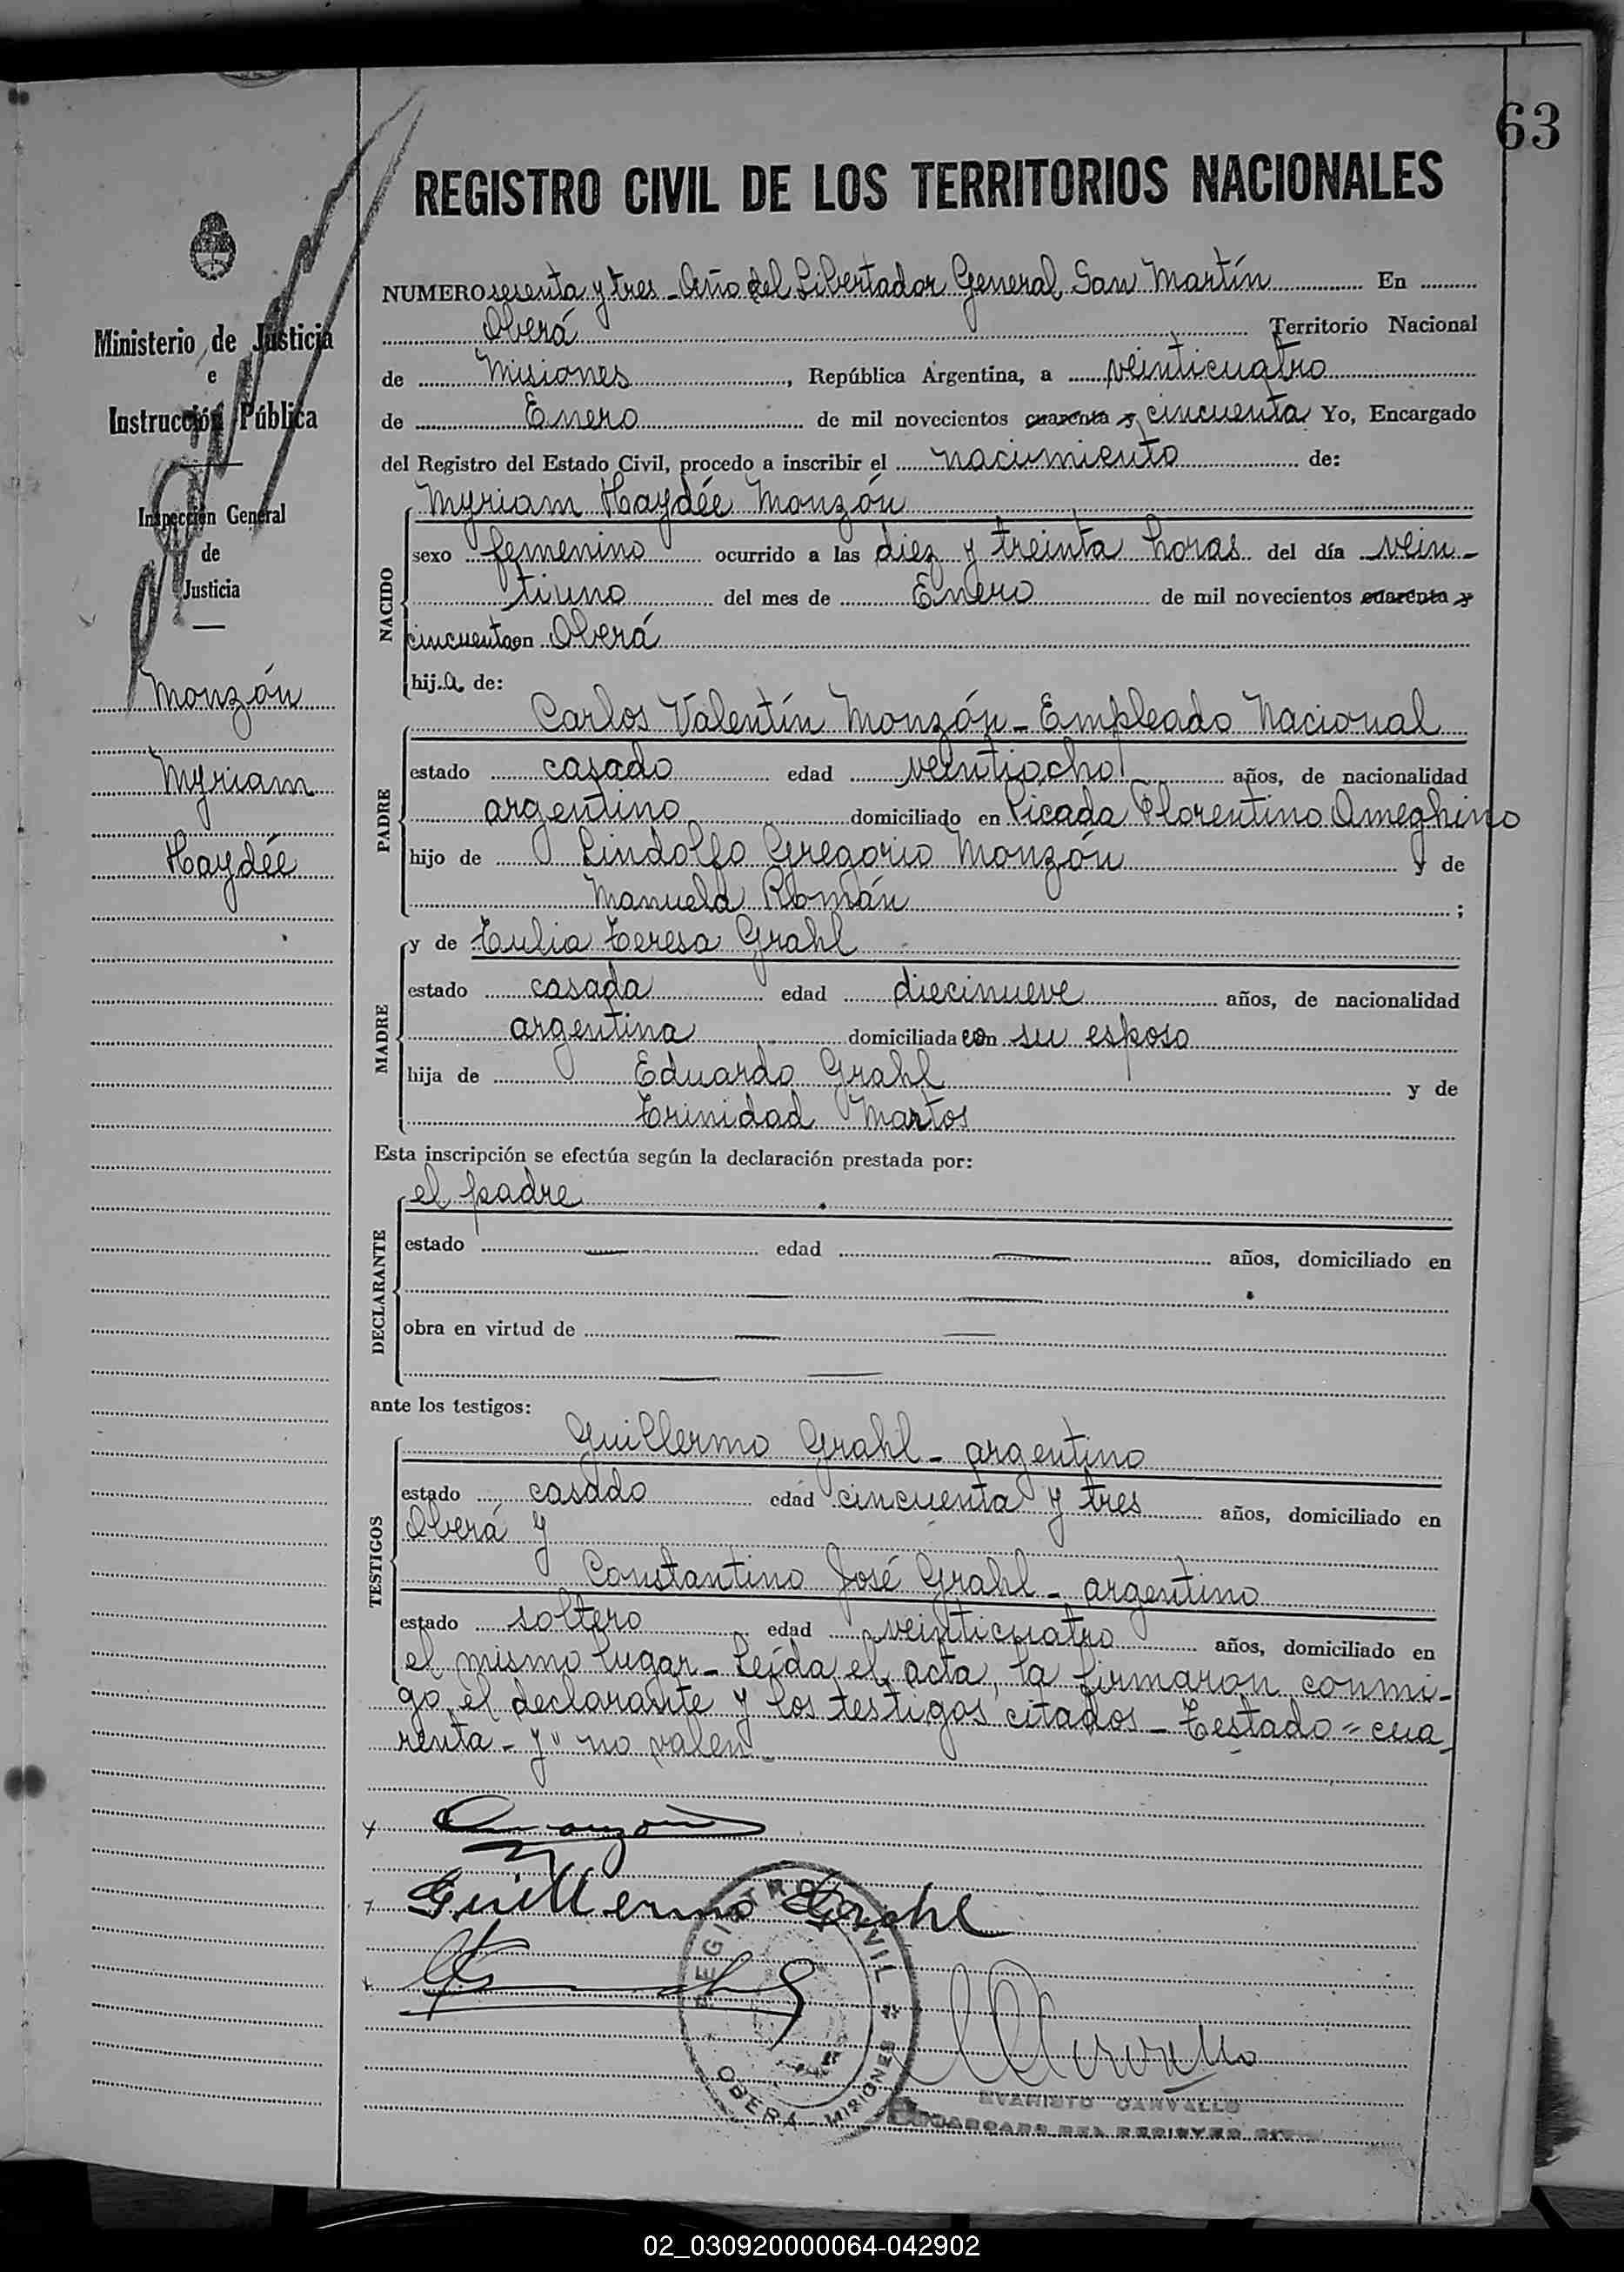 63
REGISTRO CIVIL DE LOS TERRITORIOS NACIONALES
Ministerio de Justicia
e
Instrucción Pública
Inspección General
de
Justicia
Monzón
Myriam
Haydée
NUMERO sesenta y tres - Año del Libertador General San Martín En
Oberá Territorio Nacional
de Misiones, República Argentina, a veinticuatro
de Enero de mil novecientos cuarenta y cincuenta Yo, Encargado
del Registro del Estado Civil, procedo a inscribir el nacimiento de:
NACIDO
Myriam Haydée Monzón
sexo femenino ocurrido a las diez y treinta horas del día vein-
tiuno del mes de Enero de mil novecientos cuarenta y
cincuenta en Oberá
hij.a de:
PADRE
Carlos Valentín Monzón - Empleado Nacional
estado casado edad veintiocho años, de nacionalidad
argentino domiciliado en Picada Florentino Ameghino
hijo de Lindolfo Gregorio Monzón y de
Manuela Román ;
MADRE
y de Tulia Teresa Grahl
estado casada edad diecinueve años, de nacionalidad
argentina domiciliada con su esposo
hija de Eduardo Grahl y de
Trinidad Martos
Esta inscripción se efectúa según la declaración prestada por:
DECLARANTE
el padre
estado edad años, domiciliado en
obra en virtud de
ante los testigos:
TESTIGOS
Guillermo Grahl - argentino
estado casado edad cincuenta y tres años, domiciliado en
Oberá y
Constantino José Grahl - argentino
estado soltero edad veinticuatro años, domiciliado en
el mismo lugar - Leída el acta, la firmaron conmi-
go el declarante y los testigos citados - Testado = cua-
renta - y" no valen -
Guillermo Grahl
REGISTRO CIVIL
OBERÁ - MISIONES
EVARISTO CARVALLO
ENCARGADO DEL REGISTRO CIVIL
02_030920000064-042902